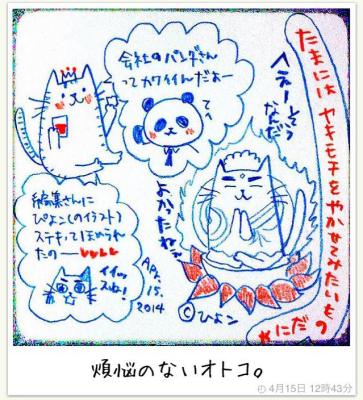 たまには ヤキモチをやかせてみたいもの
だにゃ
会社のパンダさん
ってカワイイんだよー
てへ
へぇーそう
なんだ
よかったねぇ
編集さんに
ぴょん(のイラスト)
ステキってほめられ
たのー
イイッ
スね!
Apr.
15.
2014
©ひょン
煩悩のないオトコ。
4月15日 12時43分